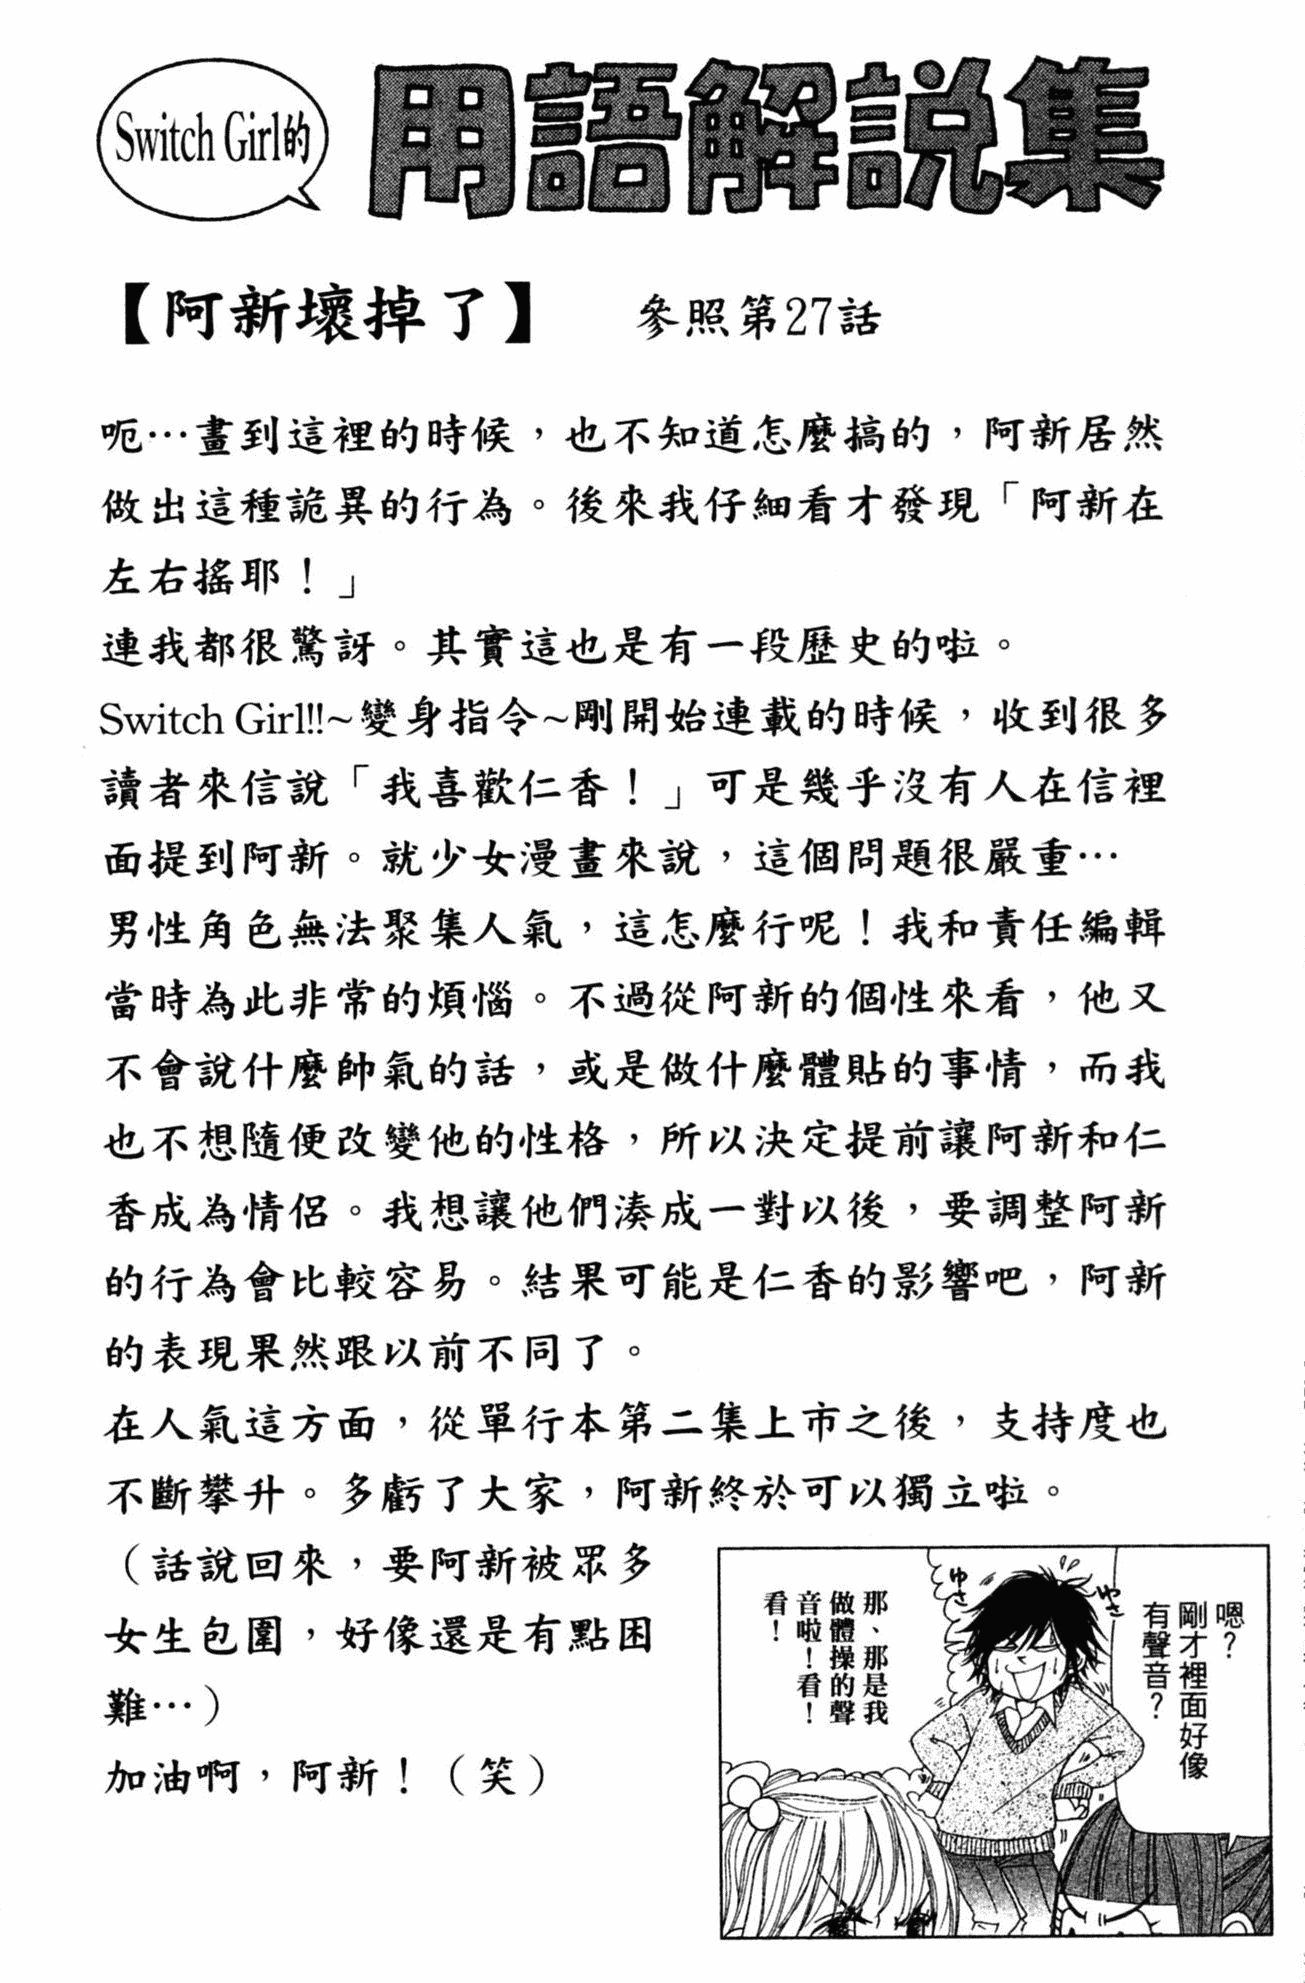 Switch Girl的
用語解說集
【阿新壞掉了】 參照第27話
呃⋯畫到這裡的時候，也不知道怎麼搞的，阿新居然
做出這種詭異的行為。後來我仔細看才發現「阿新在
左右搖耶！」
連我都很驚訝。其實這也是有一段歷史的啦。
Switch Girl!!~變身指令~剛開始連載的時候，收到很多
讀者來信說「我喜歡仁香！」可是幾乎沒有人在信裡
面提到阿新。就少女漫畫來說，這個問題很嚴重⋯
男性角色無法聚集人氣，這怎麼行呢！我和責任編輯
當時為此非常的煩惱。不過從阿新的個性來看，他又
不會說什麼帥氣的話，或是做什麼體貼的事情，而我
也不想隨便改變他的性格，所以決定提前讓阿新和仁
香成為情侶。我想讓他們湊成一對以後，要調整阿新
的行為會比較容易。結果可能是仁香的影響吧，阿新
的表現果然跟以前不同了。
在人氣這方面，從單行本第二集上市之後，支持度也
不斷攀升。多虧了大家，阿新終於可以獨立啦。
（話說回來，要阿新被眾多
女生包圍，好像還是有點困
難⋯）
加油啊，阿新！（笑）
嗯？
剛才裡面好像
有聲音？
ゆさ
ゆさ
那、那是我
做體操的聲
音啦！看！
看！